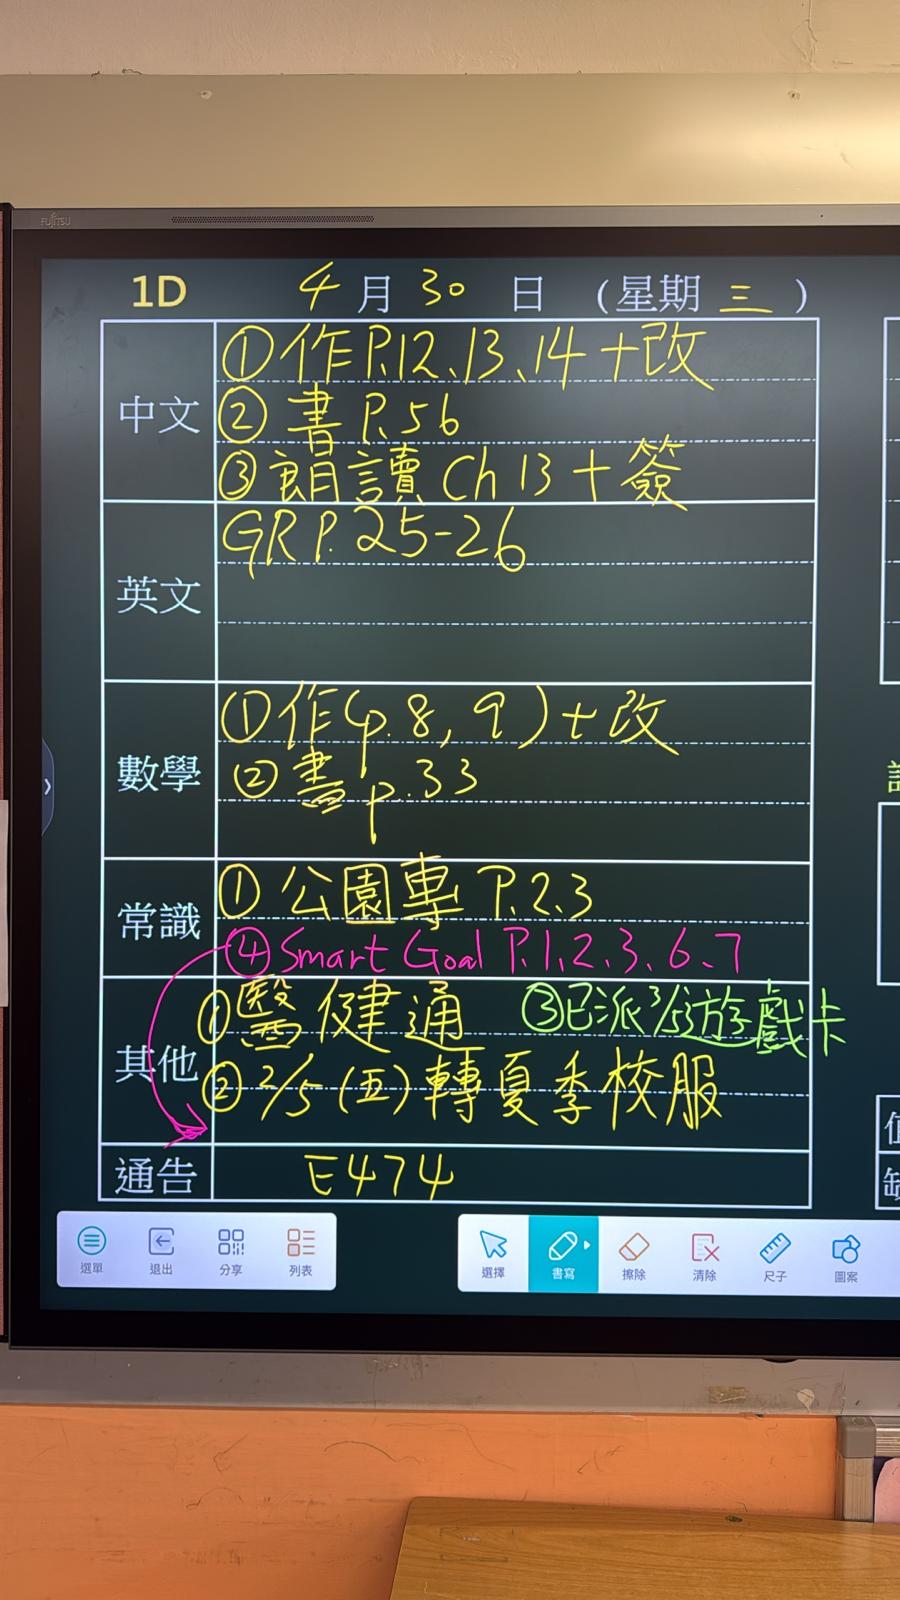 FUJITSU
1D 4月30日（星期三）
中文
①作P.12、13、14+改
②書P.56
③朗讀Ch13+簽
英文
GR P.25-26
數學
①作(p.8, 9)+改
②書p.33
常識
①公園專P.2、3
④Smart Goal P.1、2、3、6、7
其他
①醫健通 ③已派2/5遊戲卡
②2/5(五)轉夏季校服
通告
E474
選單 退出 分享 列表 選擇 書寫 擦除 清除 尺子 圖案